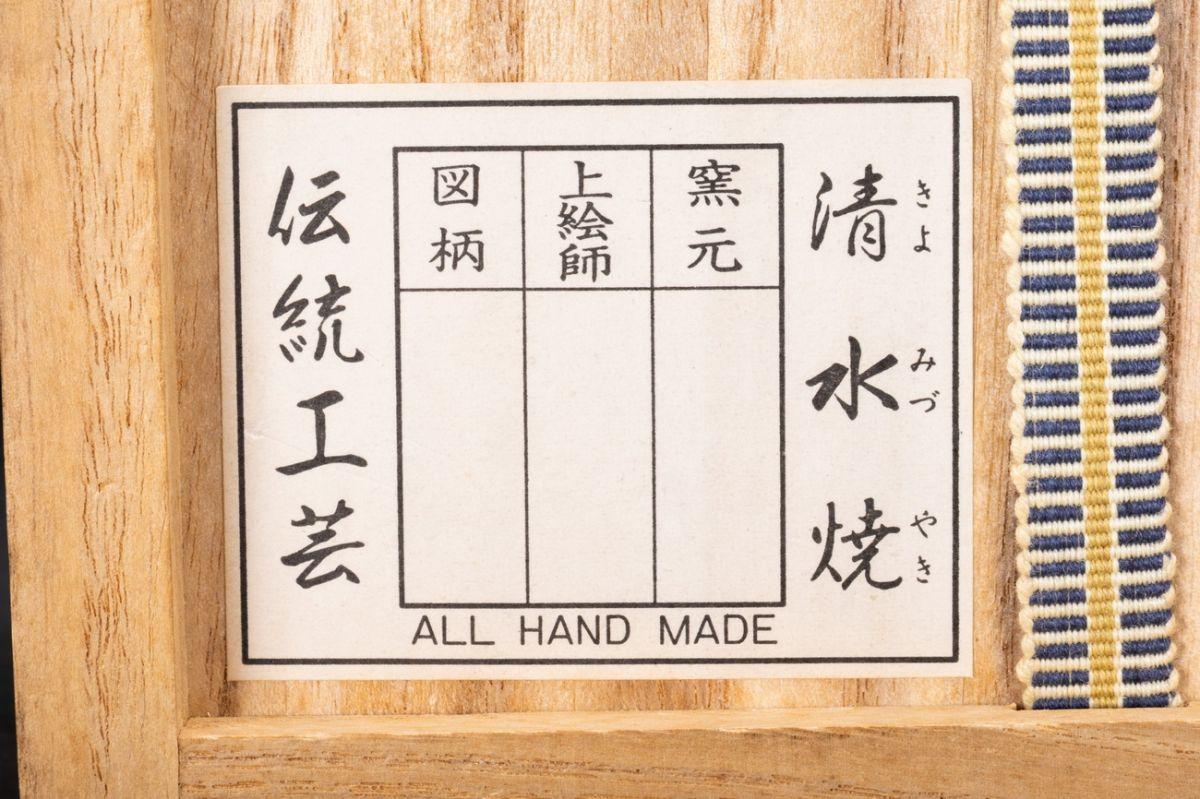 清水焼
きよみづやき
窯元
上絵師
図柄
伝統工芸
ALL HAND MADE